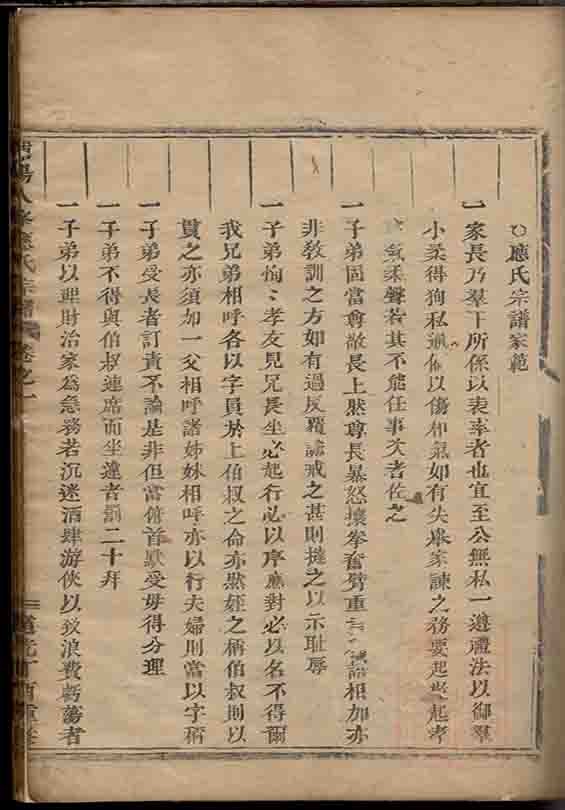 應氏宗譜家範
一家長乃羣下所係以表率者也宜至公無私一遵禮法以御羣
小柔得狗私以傷和氣如有失舉家諫之務要起敬起孝
氣柔聲若其不能任事次者佐之
一子弟固當尊敬長上然尊長暴怒攘拳奮臂重言相加亦
非敎訓之方如有過反覆誡之甚則撻之以示耻辱
一子弟恂〻孝友見兄長坐必起行必以序應對必以名不得爾
我兄弟相呼各以字貟於上伯叔之命亦然姪之稱伯叔則以
貫之亦須如一父相呼諸姊妹相呼亦以行夫婦則當以字稱
一子弟受長者訂責不論是非但當俯首默受毋得分理
一子弟不得與伯叔連席而坐違者罰二十拜
一子弟以理財治家爲急務若沉迷酒肆游俠以致浪費虧蕩者
八峯應氏宗譜 卷之一
二 道光丁酉重修